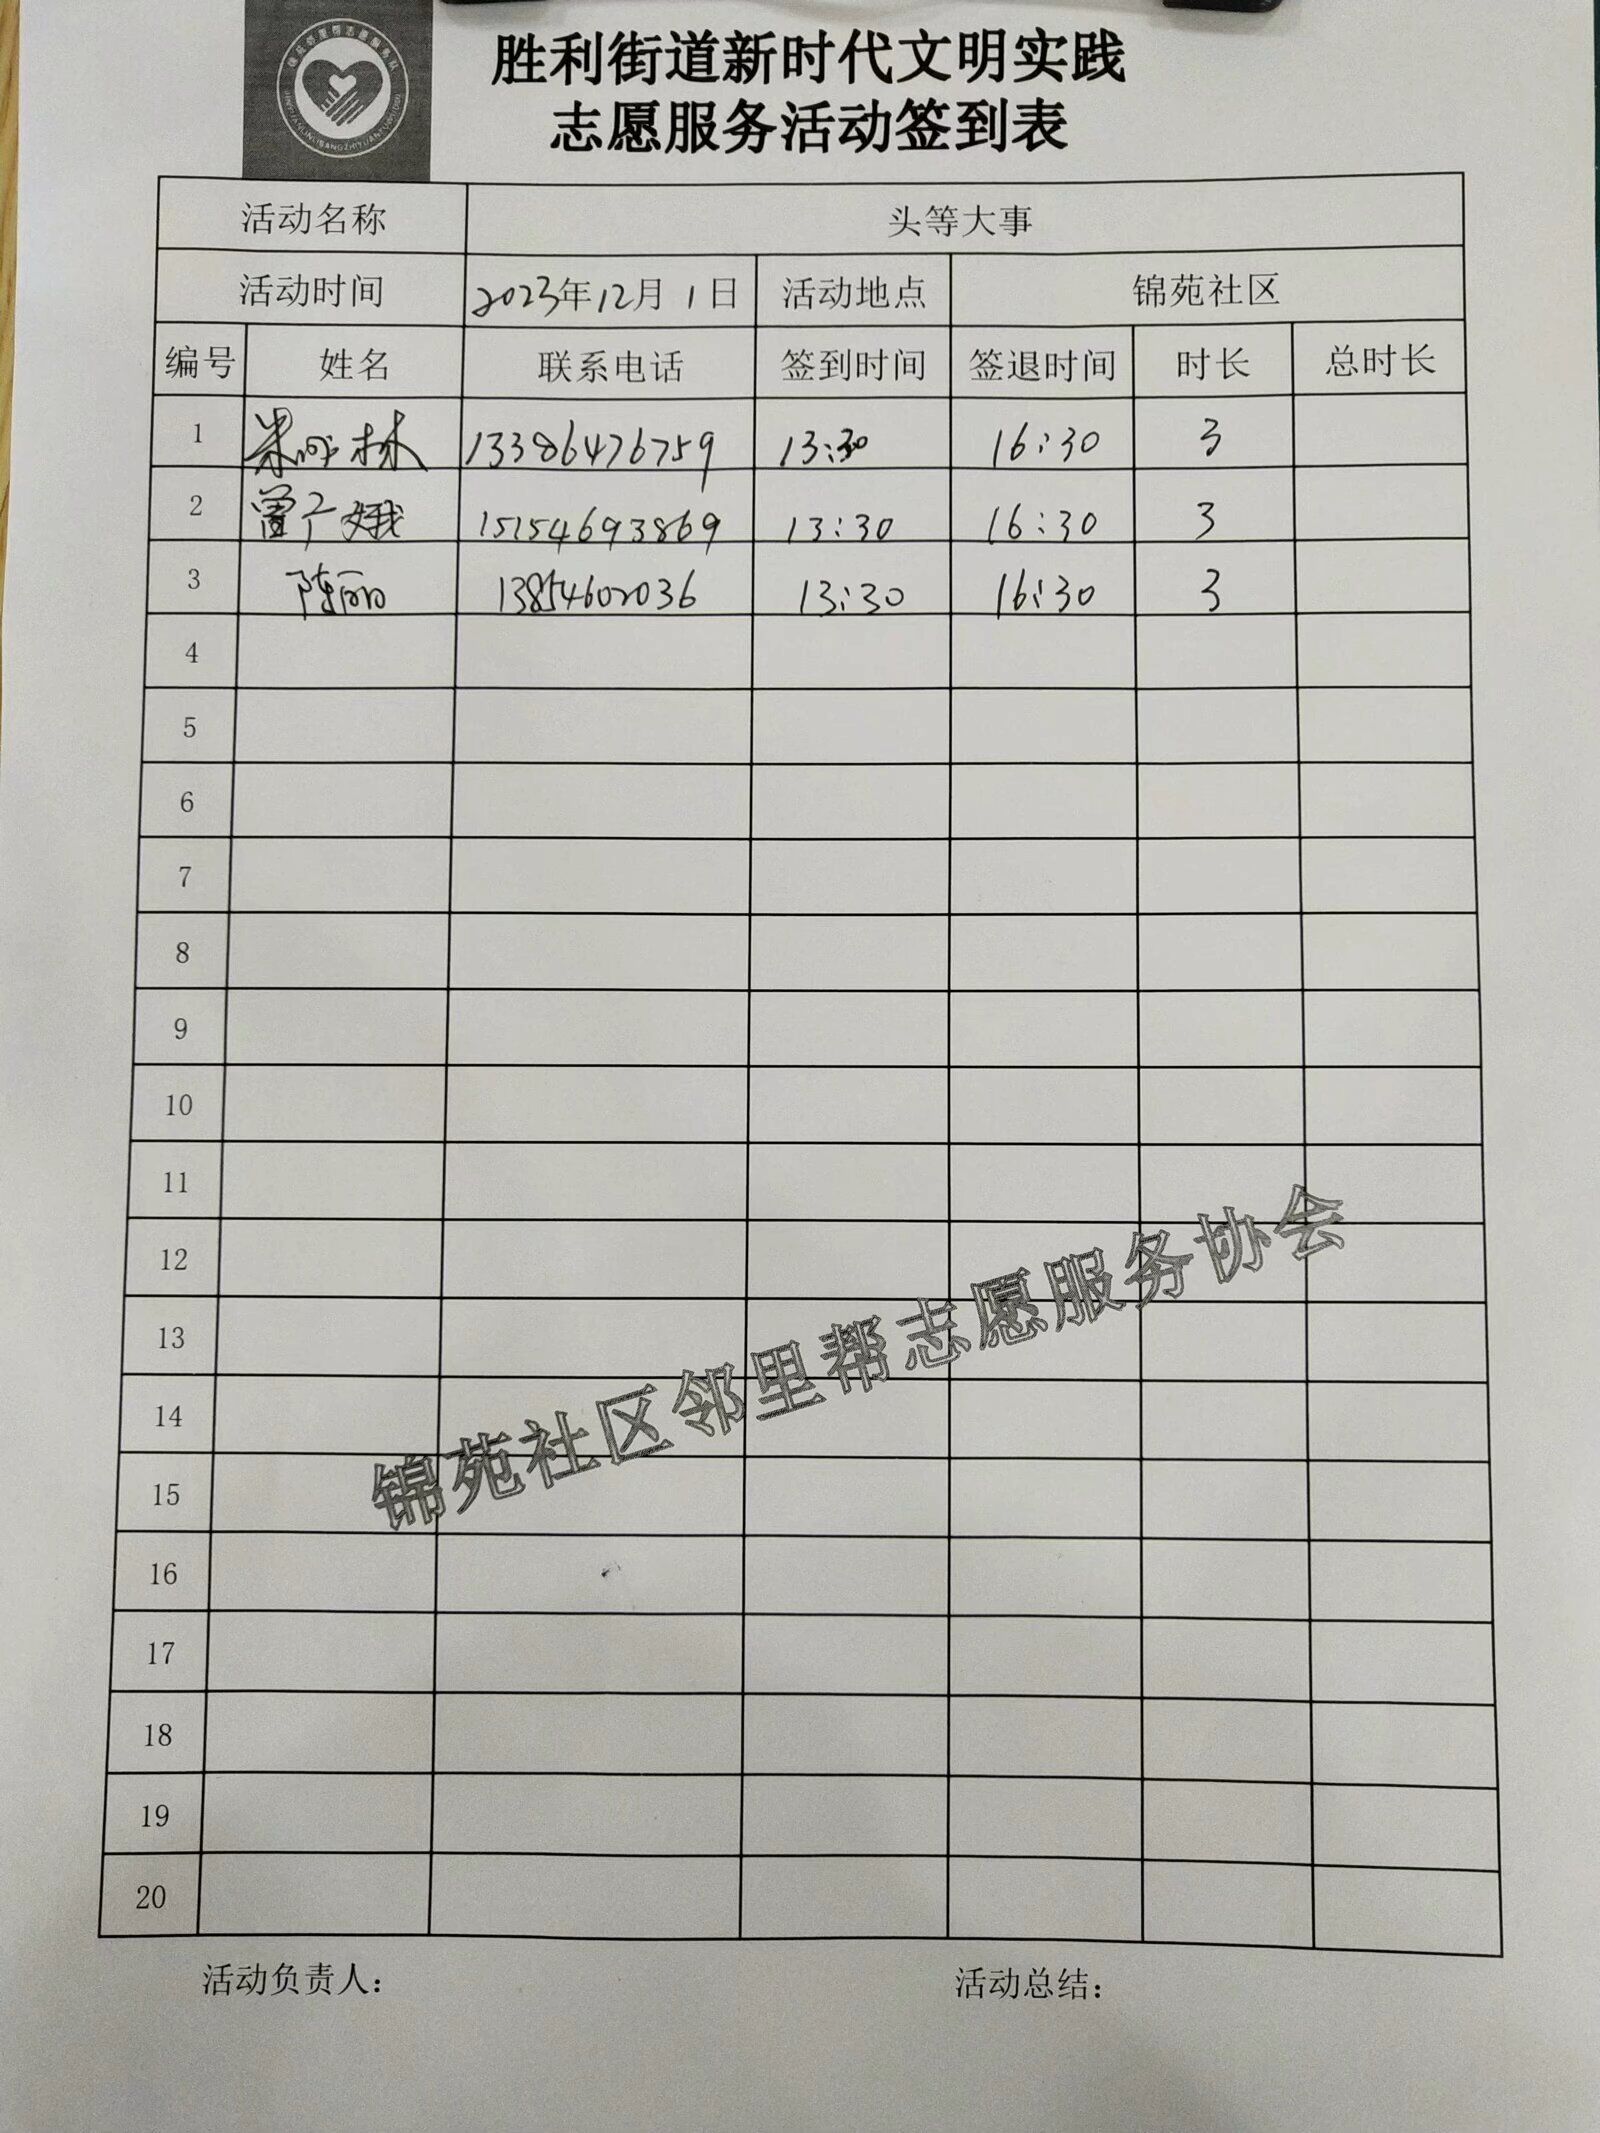 胜利街道新时代文明实践
志愿服务活动签到表
活动名称 头等大事
活动时间 2023年12月1日 活动地点 锦苑社区
编号 姓名 联系电话 签到时间 签退时间 时长 总时长
1 林 13386476759 13:30 16:30 3
2 曾广娥 15154693869 13:30 16:30 3
3 陈丽 13854602036 13:30 16:30 3
4
5
6
7
8
9
10
11
12
13
14
15
16
17
18
19
20
锦苑社区邻里帮志愿服务协会
活动负责人： 活动总结：